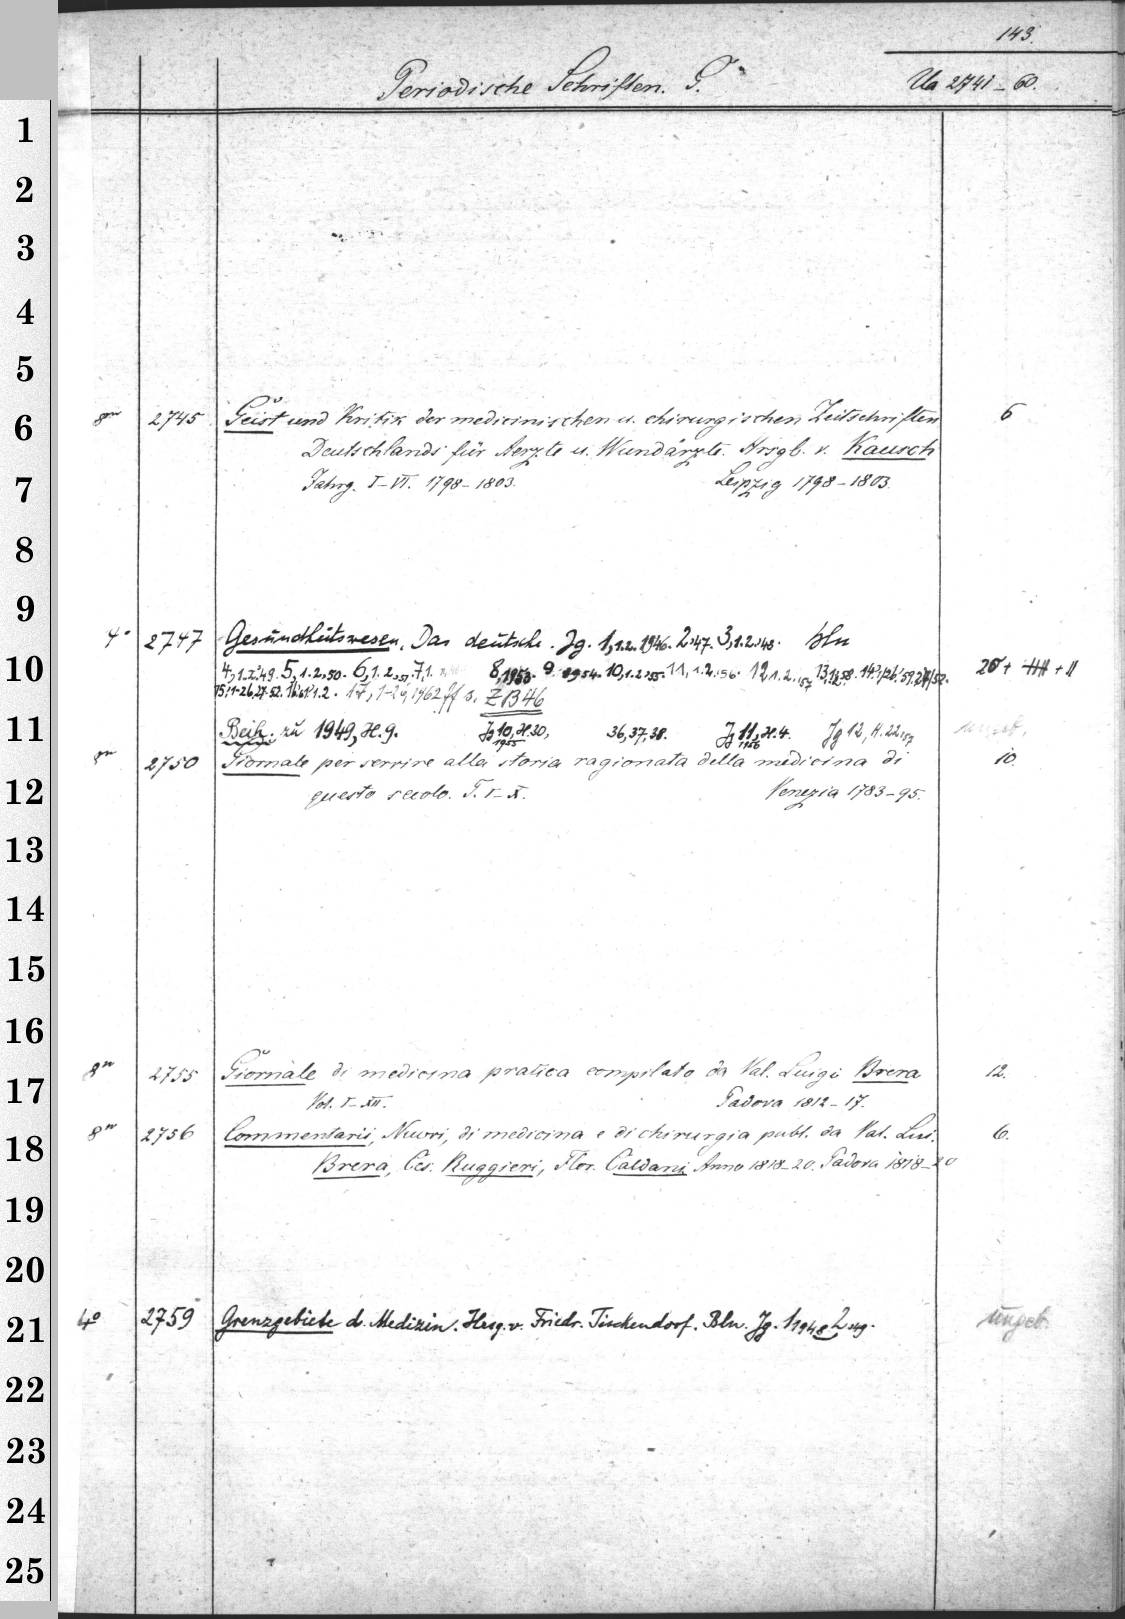 143.
Periodische Schriften. G.
Ua 2741–60.
1
2
3
4
5
6
8° 2745 Geist und Kritik der medicinischen u. chirurgischen Zeitschriften 6
Deutschlands für Aerzte u. Wundärzte. Hrsgb. v. Kausch
7
Jahrg. I–VI. 1798–1803. Leipzig 1798–1803.
8
9
4° 2747 Gesundheitswesen, Das deutsche. Jg. 1,1.2.1946. 2.'47. 3,1.2.'48. bln
10
4,1.2.'49. 5,1.2,50. 6,1.2,51, 7,1. 8,1953. 9. 1954. 10,1.2'55. 11,1.2.'56. 12 1.2.'57 13,1.2.58. 20 + + II
15,1-26,27-52. 16'61,1.2. 17, 1-26,1962 ff s. ZB 46
11
Beih. zü 1949, H. 9. Jg 10, H. 30, 1955 36,37,38. Jg 11, H. 4. 1956 Jg 12, H. 22,'57 ungeb.
8° 2750 Giornale per servire alla storia ragionata della medicina di 10.
12
questo secolo. T. I–X. Venezia 1783–95.
13
14
15
16
17
8° 2755 Giornale di medicina pratica compilato da Val. Luigi Brera 12.
Vol. I–XII. Padova 1812–17.
18
8° 2756 Commentarii, Nuovi, di medicina e di chirurgia publ. da Val. Lui. 6.
Brera, Ces. Ruggieri, Flor. Caldani Anno 1818–20. Padova 1818–20
19
20
21
4° 2759 Grenzgebiete d. Medizin. Hrsg. v. Friedr. Tischendorf. Bln. Jg. 1 1948 2 '49. üngeb.
22
23
24
25